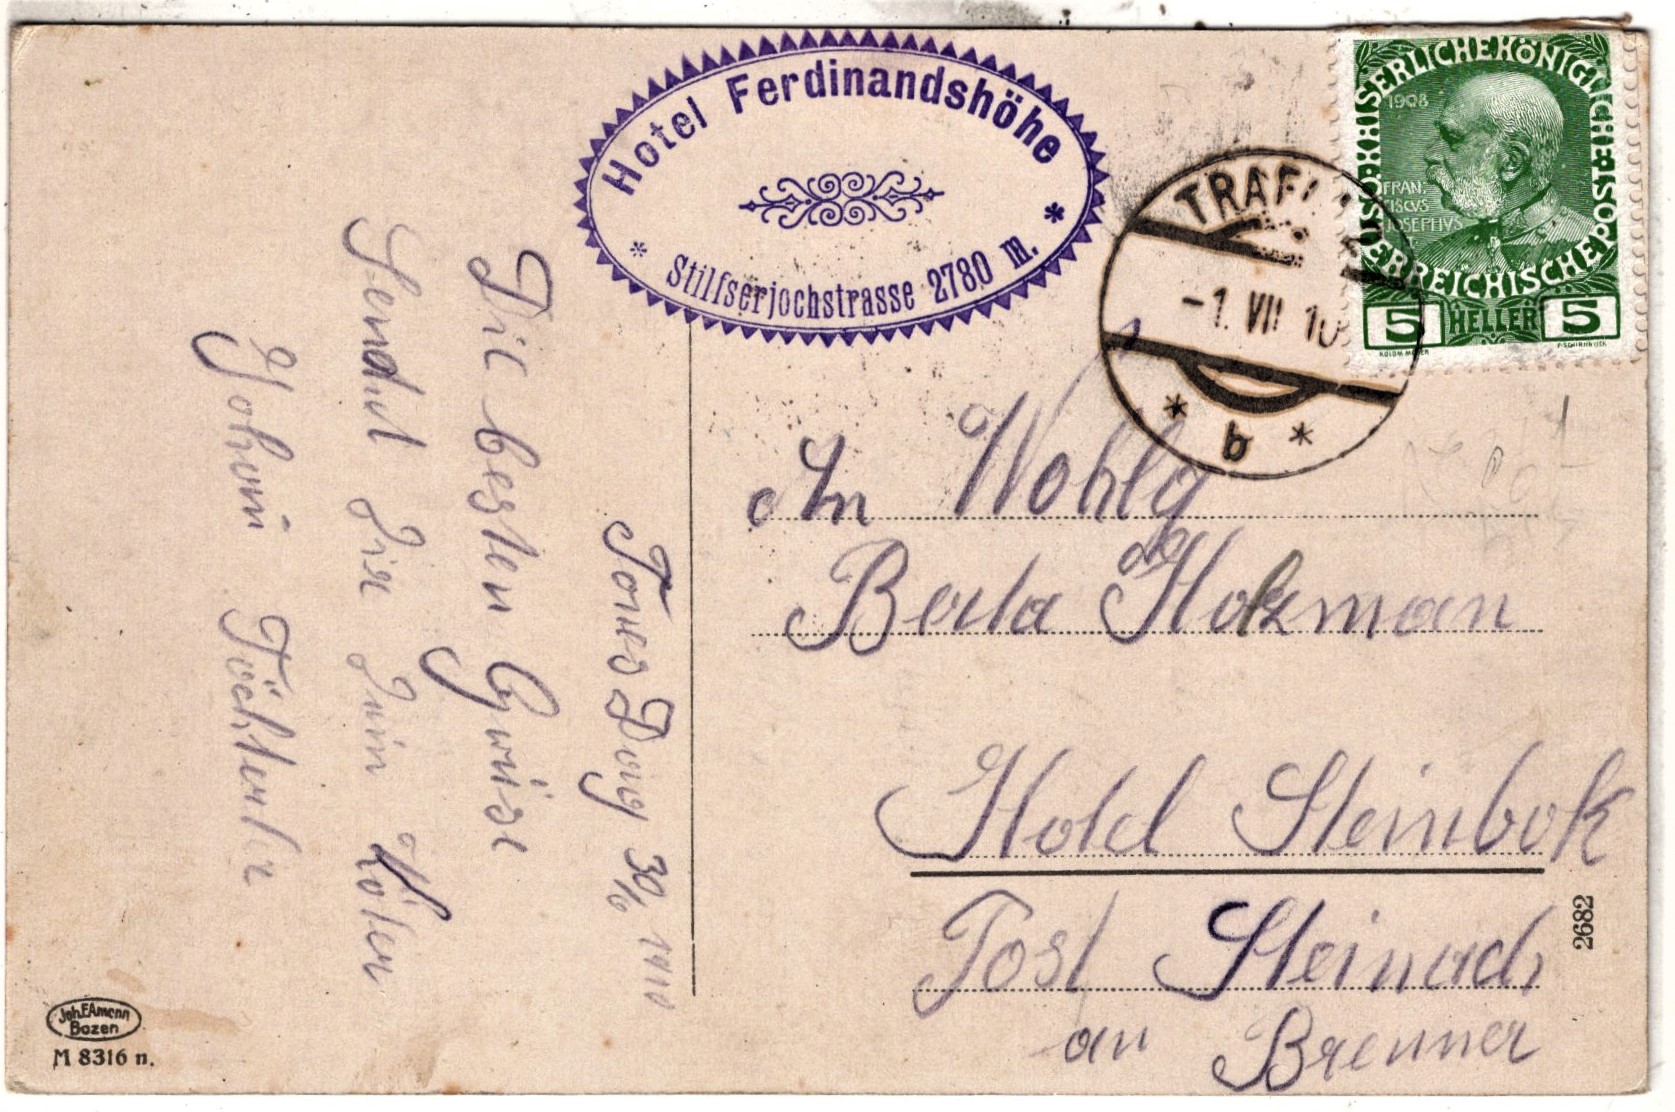 Hotel Ferdinandshöhe
* Stilfserjochstrasse 2780 m. *
KAISERLICHEKÖNIGLICHE ÖSTERREICHISCHE POST
1908
FRAN:
CISCVS
JOSEPHVS
5 HELLER 5
TRAF
-1. VII 10
* b *
30/6 1910
Die besten Grüse
Sendet Dir Dein
Johani
An Wohlg
Berta Holzman
Hotel Steinbok
Post Steinach
an Brenner
2682
Joh.F.Amonn
Bozen
M 8316 n.